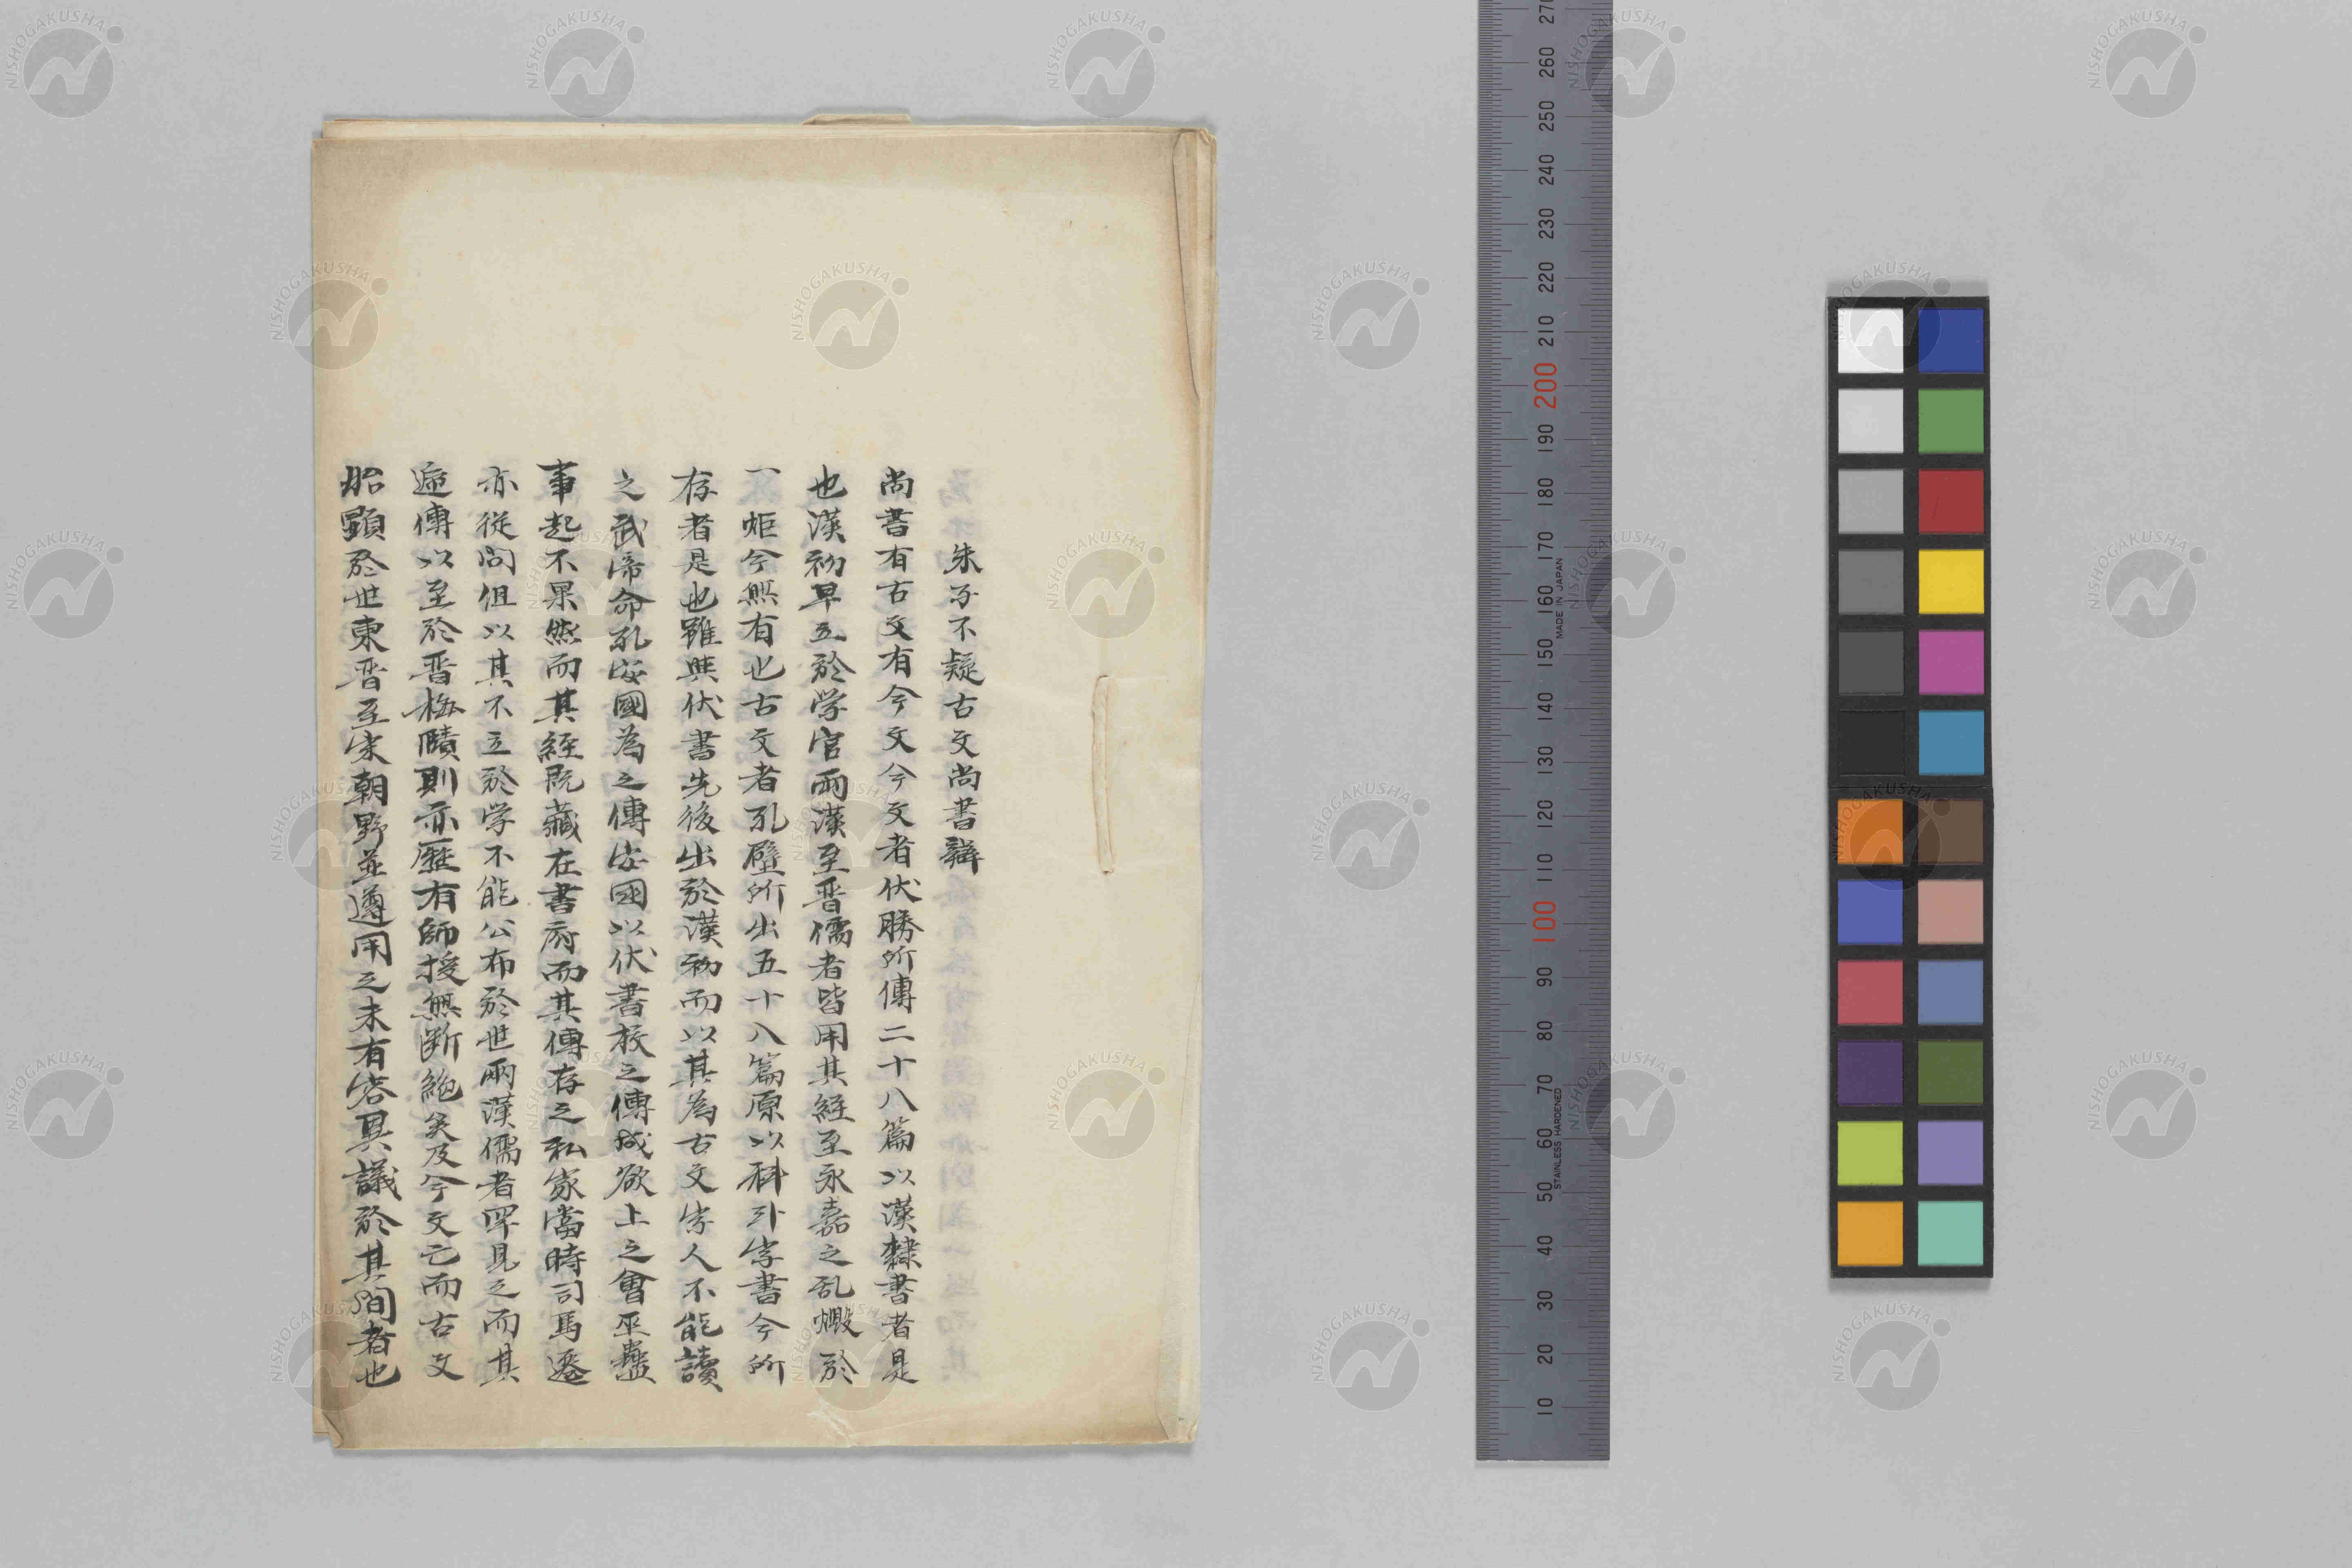 朱子不疑古文尚書辯
尚書有古文有今文今文者伏勝所傳二十八篇以漢隸書者是
也漢初早立於学官兩漢至晋儒者皆用其経至永嘉之乱燬於
一炬今無有也古文者孔壁所出五十八篇原以科斗字書今所
存者是也雖與伏書先後出於漢初而以其為古文字人不能讀
之武帝命孔安國為之傳安國以伏書校之傳成欲上之會巫蠱
事起不果然而其經既藏在書府而其傳存之私家當時司馬遷
亦從問但以其不立於学不能公布於世兩漢儒者罕見之而其
遞傳以至於晋梅賾則亦歷有師授無断絶矣及今文亡而古文
始顕於世東晋至宋朝野並遵用之未有容異議於其間者也
NISHOGAKUSHA
10 20 30 40 50 60 70 80 90 100 110 120 130 140 150 160 170 180 190 200 210 220 230 240 250 260 270
STAINLESS HARDENED
MADE IN JAPAN